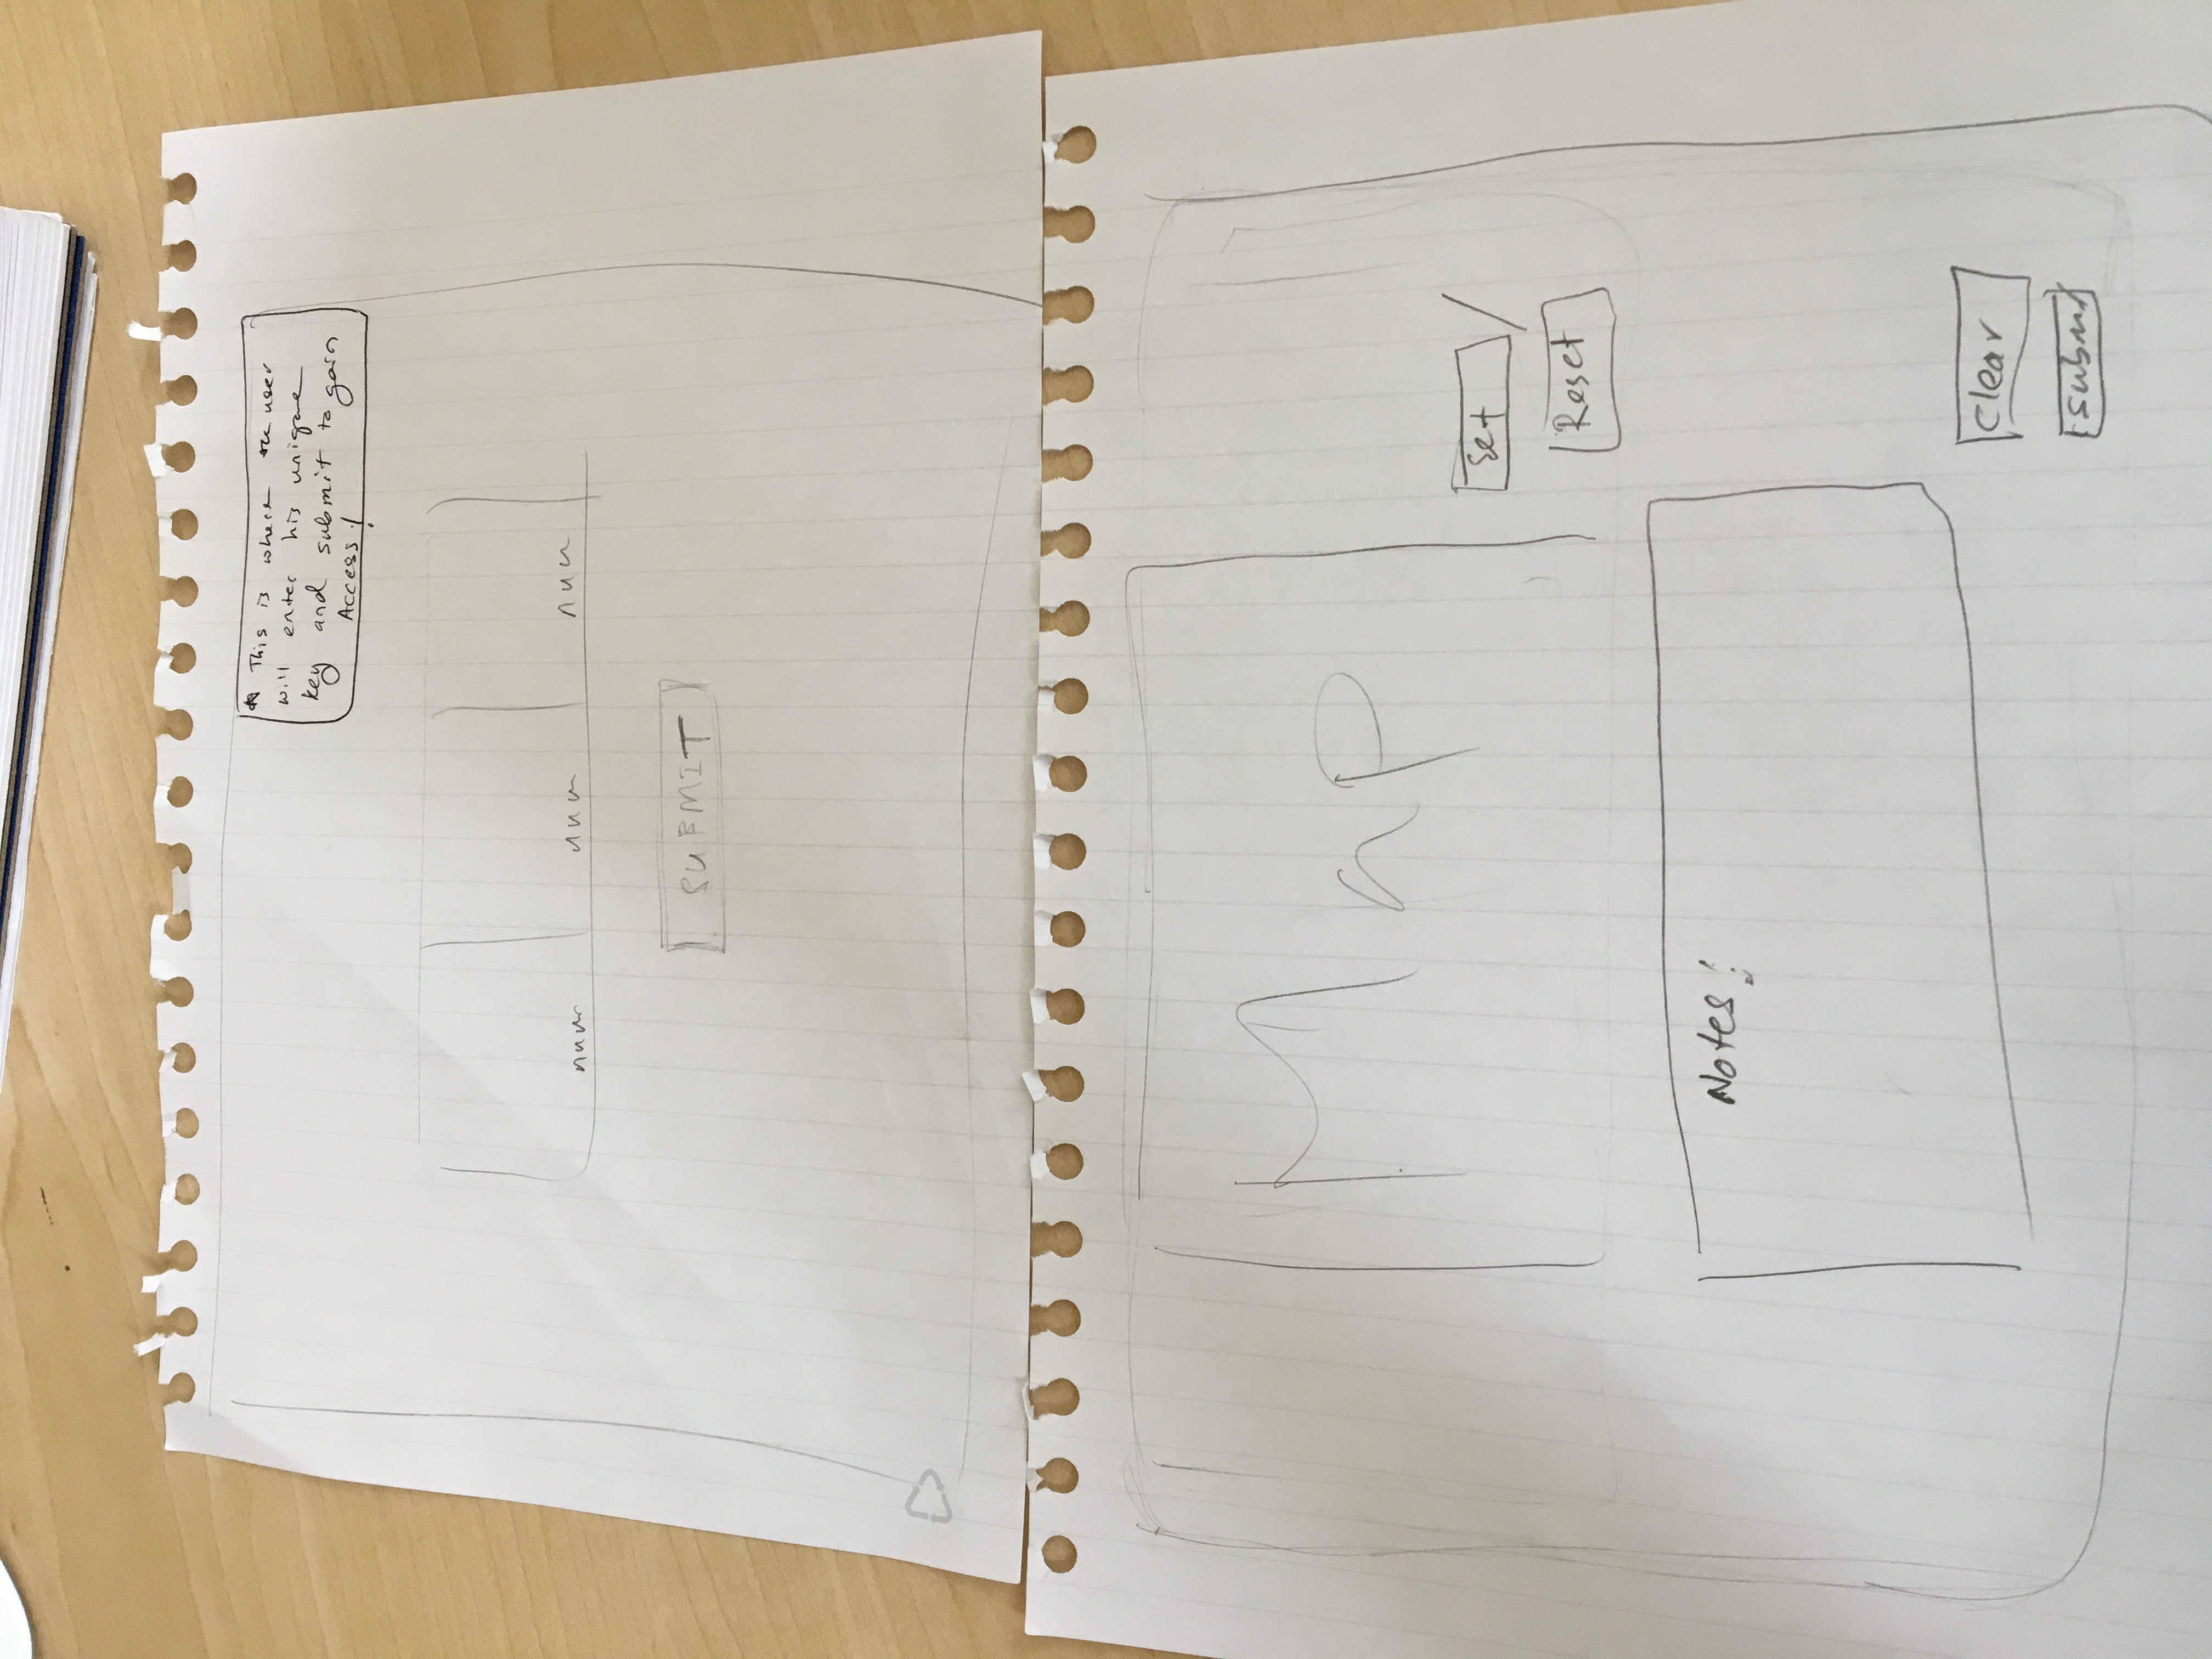 * This is where the user
will enter his unique
key and submit to gain
Access!
num num num
SUBMIT
Map
Set /
Reset
Notes!
clear
submit